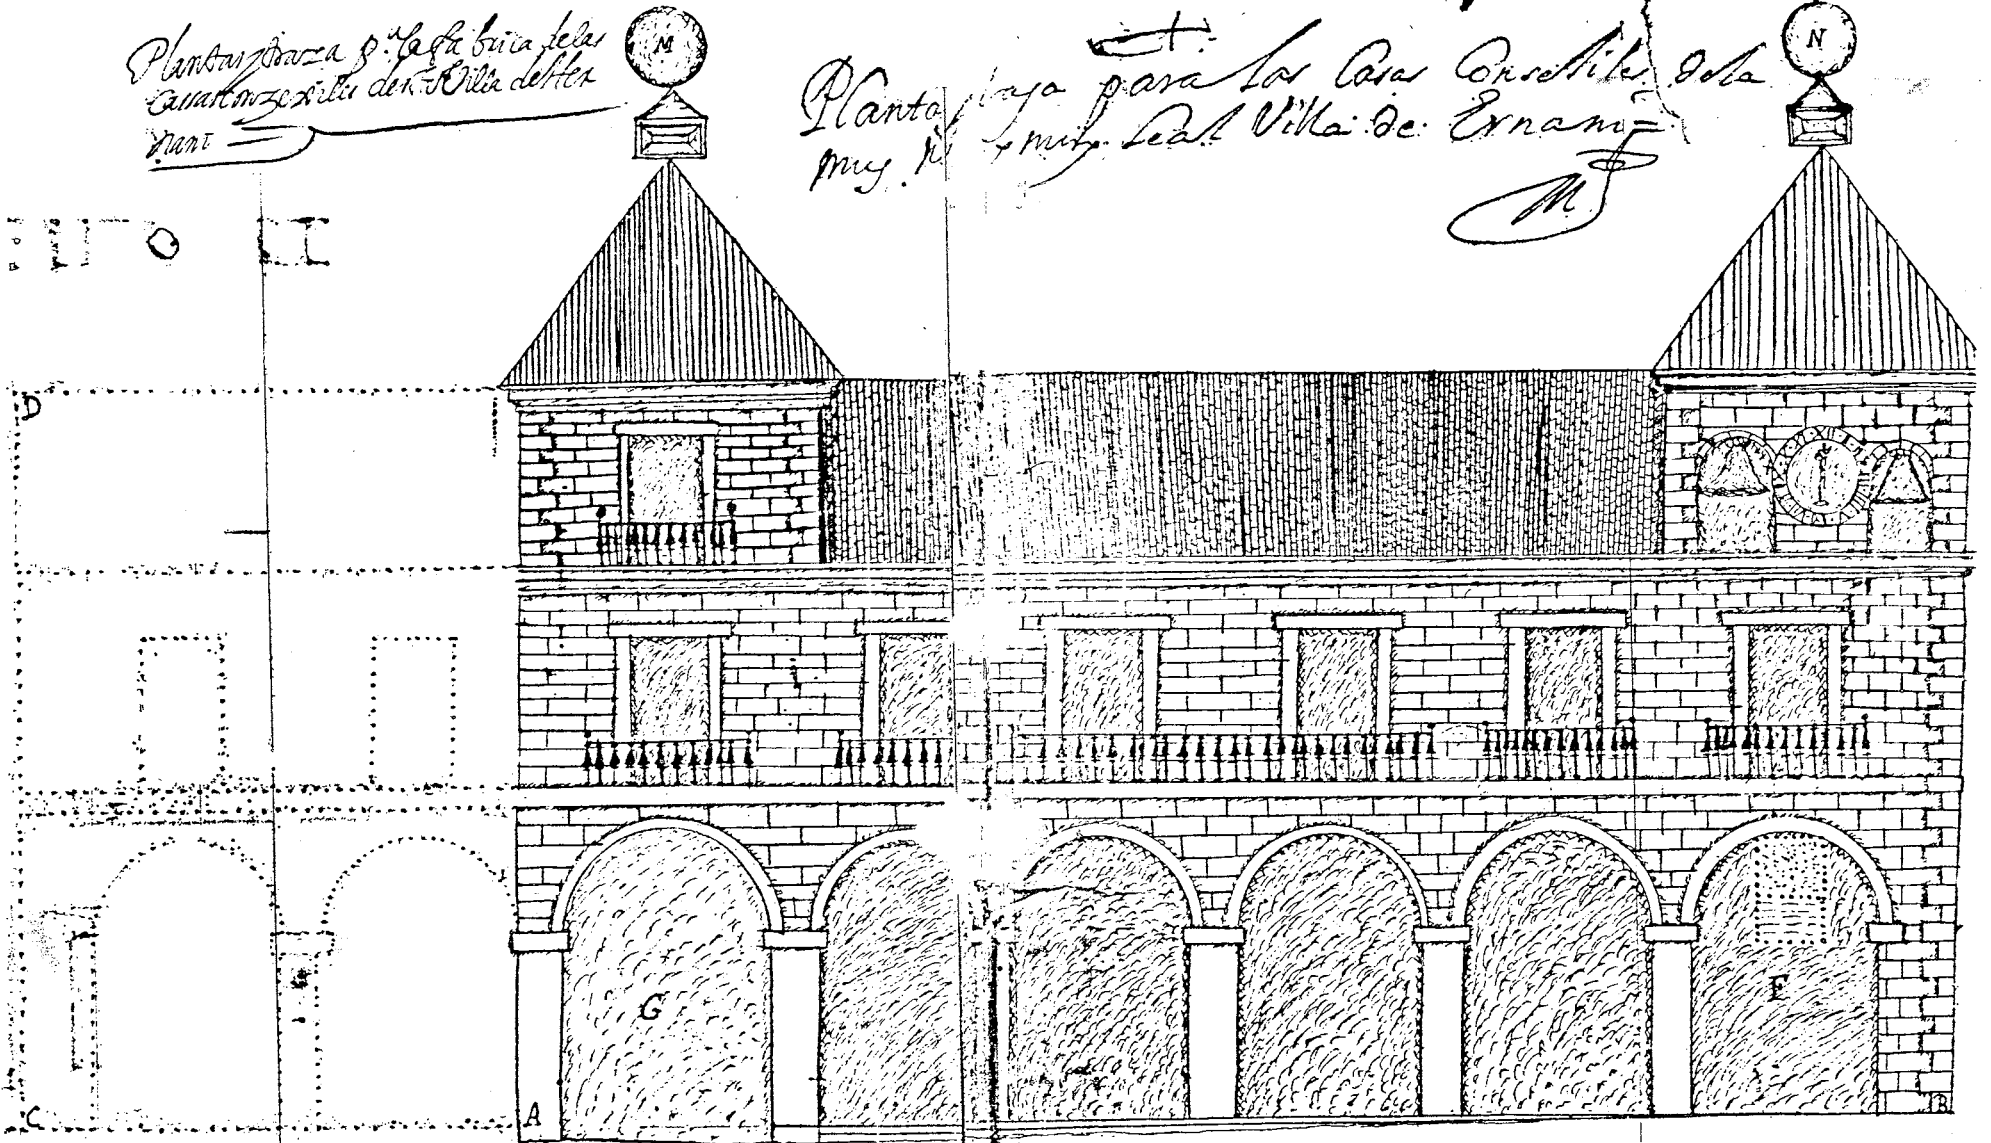 Planta y traza p.ª la fabrica de las
Cassas Conzexiles de la Villa de Her
nani
Planta baja para las Casas Consestiles de la
muy N y muy Leal Villa de Ernani
M
N
D
G
F
C
A
B